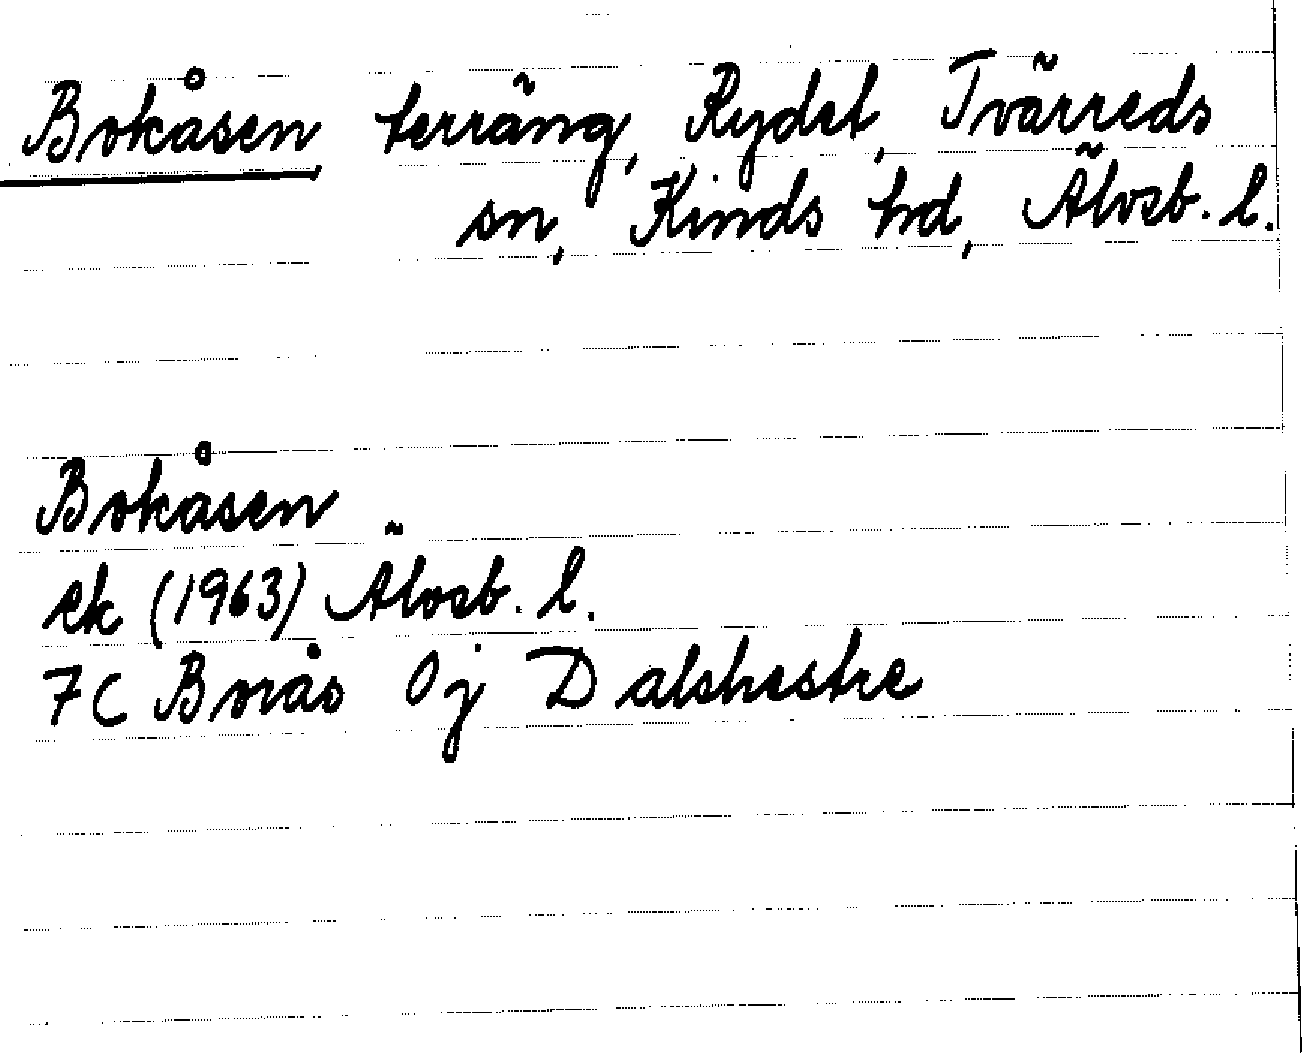 Bokåsen, terräng, Rydet, Tvärreds
sn, Kinds hd, Älvsb. l.
Bokåsen
ek (1963) Älvsb. l.
7C Borås 0j Dalshestre